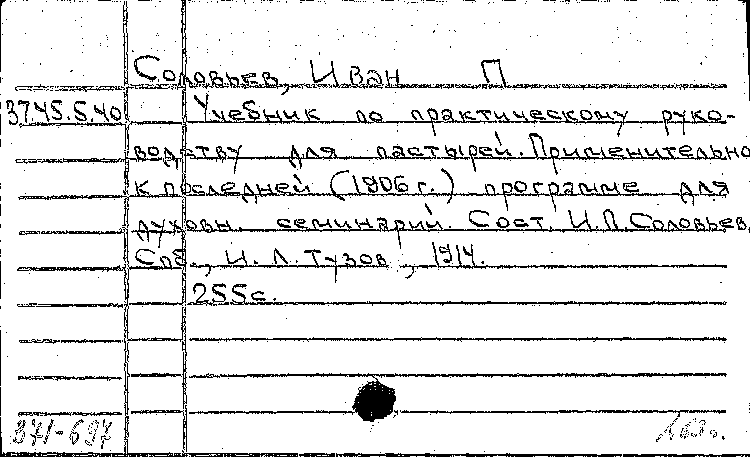 Соловьев, Иван П
37.45.5.40 Учебник по практическому руко-
водству для пастырей. Применительно
к последней (1906 г.) программе для
духовн. семинарий. Сост. И.П. Соловьев,
Спб., И. Л. Тузов, 1914.
255 с.
371-697